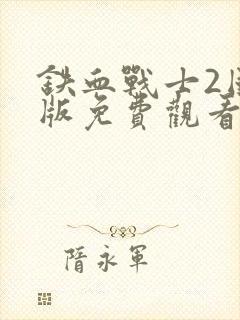 鉄血戰士2
版免費觀看
隋永軍